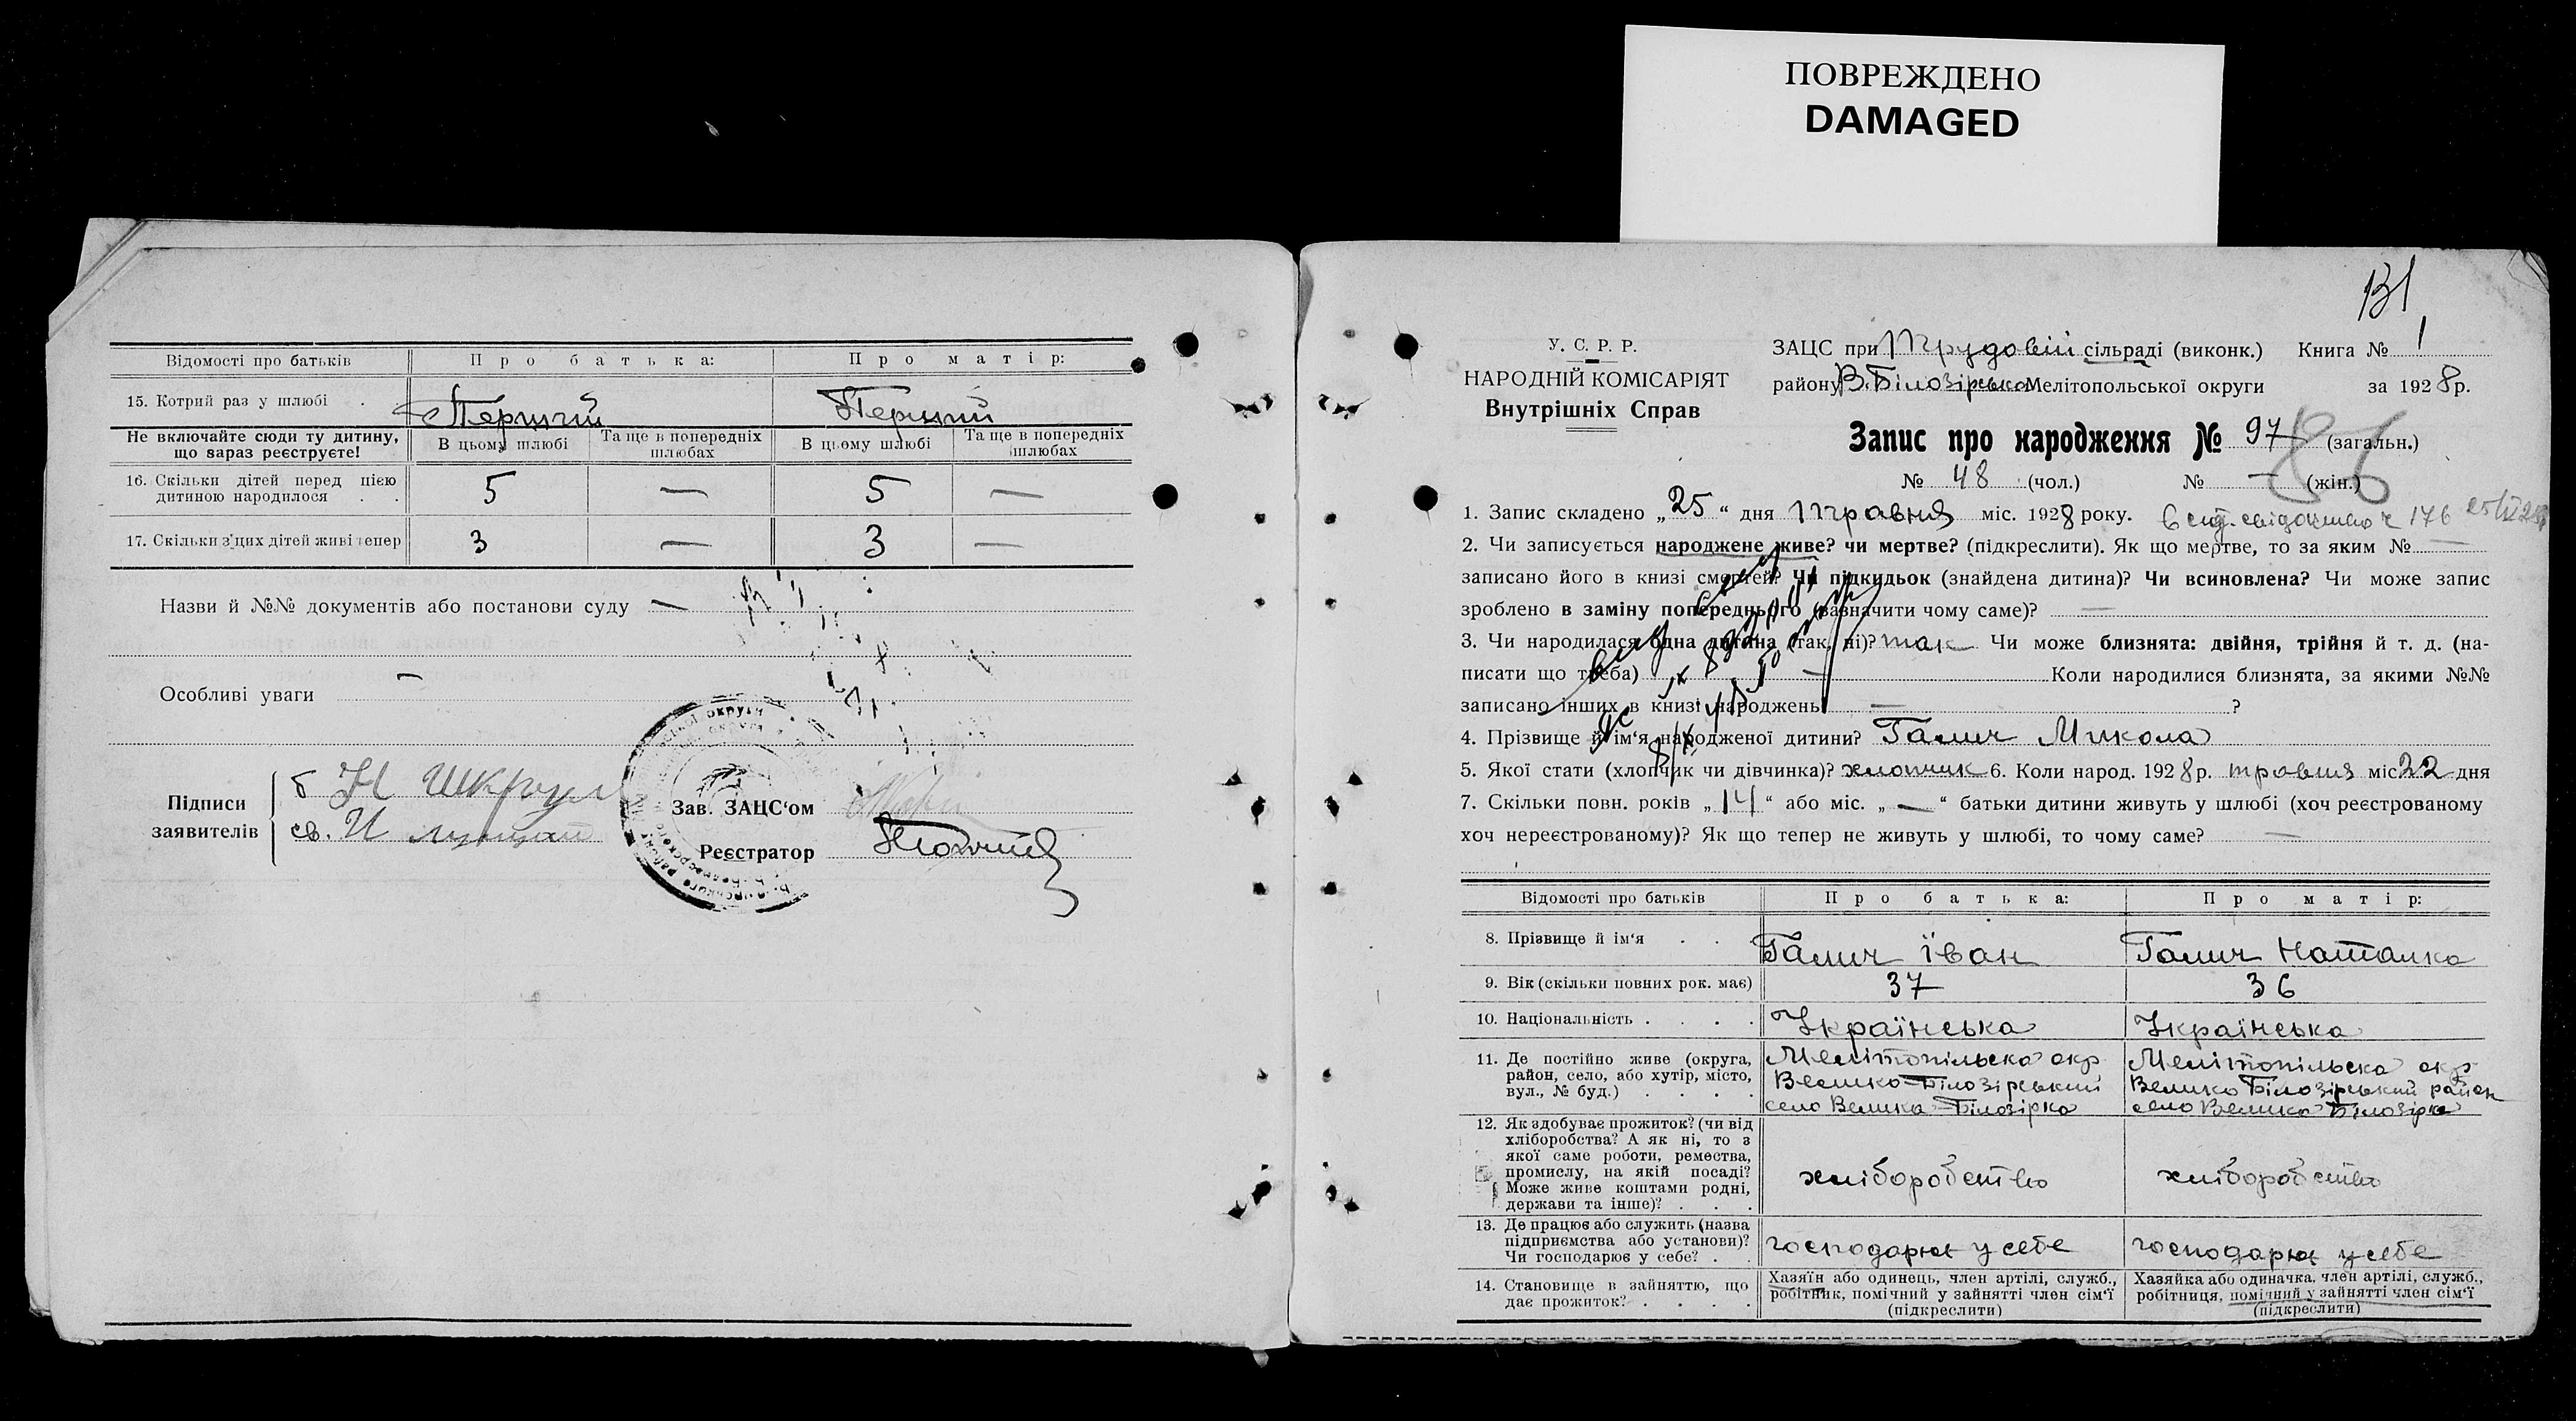 ПОВРЕЖДЕНО
DAMAGED
Відомості про батьків Про батька: Про матір:
15. Котрий раз у шлюбі . Перший Перший
Не включайте сюди ту дитину, що зараз реєструєте! В цьому шлюбі Та ще в попередніх шлюбах В цьому шлюбі Та ще в попередніх шлюбах
16. Скільки дітей перед цією дитиною народилося . . 5 — 5 —
17. Скільки з'цих дітей живі тепер 3 — 3 —
Назви й №№ документів або постанови суду —
Особливі уваги —
Підписи заявителів
Зав. ЗАЦС'ом
Реєстратор
131
У. С. Р. Р.
НАРОДНІЙ КОМІСАРІЯТ
Внутрішніх Справ
ЗАЦС при Трудовій сільраді (виконк.) Книга № 1
району В.Білозірська Мелітопольської округи за 1928 р.
Запис про народження № 97 (загальн.)
86
№ 48 (чол.) № — (жін.)
1. Запис складено „25“ дня травня міс. 1928 року.
176
2. Чи записується народжене живе? чи мертве? (підкреслити). Як що мертве, то за яким № —
записано його в книзі смертей? Чи підкидьок (знайдена дитина)? Чи всиновлена? Чи може запис
зроблено в заміну попереднього (зазначити чому саме)? —
3. Чи народилася одна дитина (так, ні)? так Чи може близнята: двійня, трійня й т. д. (на-
писати що треба) — Коли народилися близнята, за якими №№
записано інших в книзі народжень — ?
4. Прізвище й ім'я народженої дитини? Галич Микола
5. Якої стати (хлопчик чи дівчинка)? хлопчик 6. Коли народ. 1928 р. травня міс. 22 дня
7. Скільки повн. років „14“ або міс. „—“ батьки дитини живуть у шлюбі (хоч реєстрованому
хоч нереєстрованому)? Як що тепер не живуть у шлюбі, то чому саме? —
Відомості про батьків Про батька: Про матір:
8. Прізвище й ім'я . . . Галич Їван Галич Наталка
9. Вік (скільки повних рок. має) 37 36
10. Національність . . . . Українська Українська
11. Де постійно живе (округа, район, село, або хутір, місто, вул., № буд.) . . . .
Мелітопільска окр Велико-Білозірський село Велика-Білозірка
Мелітопільска окр Велико Білозірський район село Велика Білозірка
12. Як здобуває прожиток? (чи від хліборобства? А як ні, то з якої саме роботи, ремества, промислу, на якій посаді? Може живе коштами родні, держави та інше)? . . .
хліборобство хліборобство
13. Де працює або служить (назва підприємства або установи)? Чи господарює у себе? . .
господарює у себе господарює у себе
14. Становище в зайняттю, що дає прожиток? . . . .
Хазяїн або одинець, член артілі, служб., робітник, помічний у зайнятті член сім'ї (підкреслити)
Хазяйка або одиначка, член артілі, служб., робітниця, помічний у зайнятті член сім'ї (підкреслити)